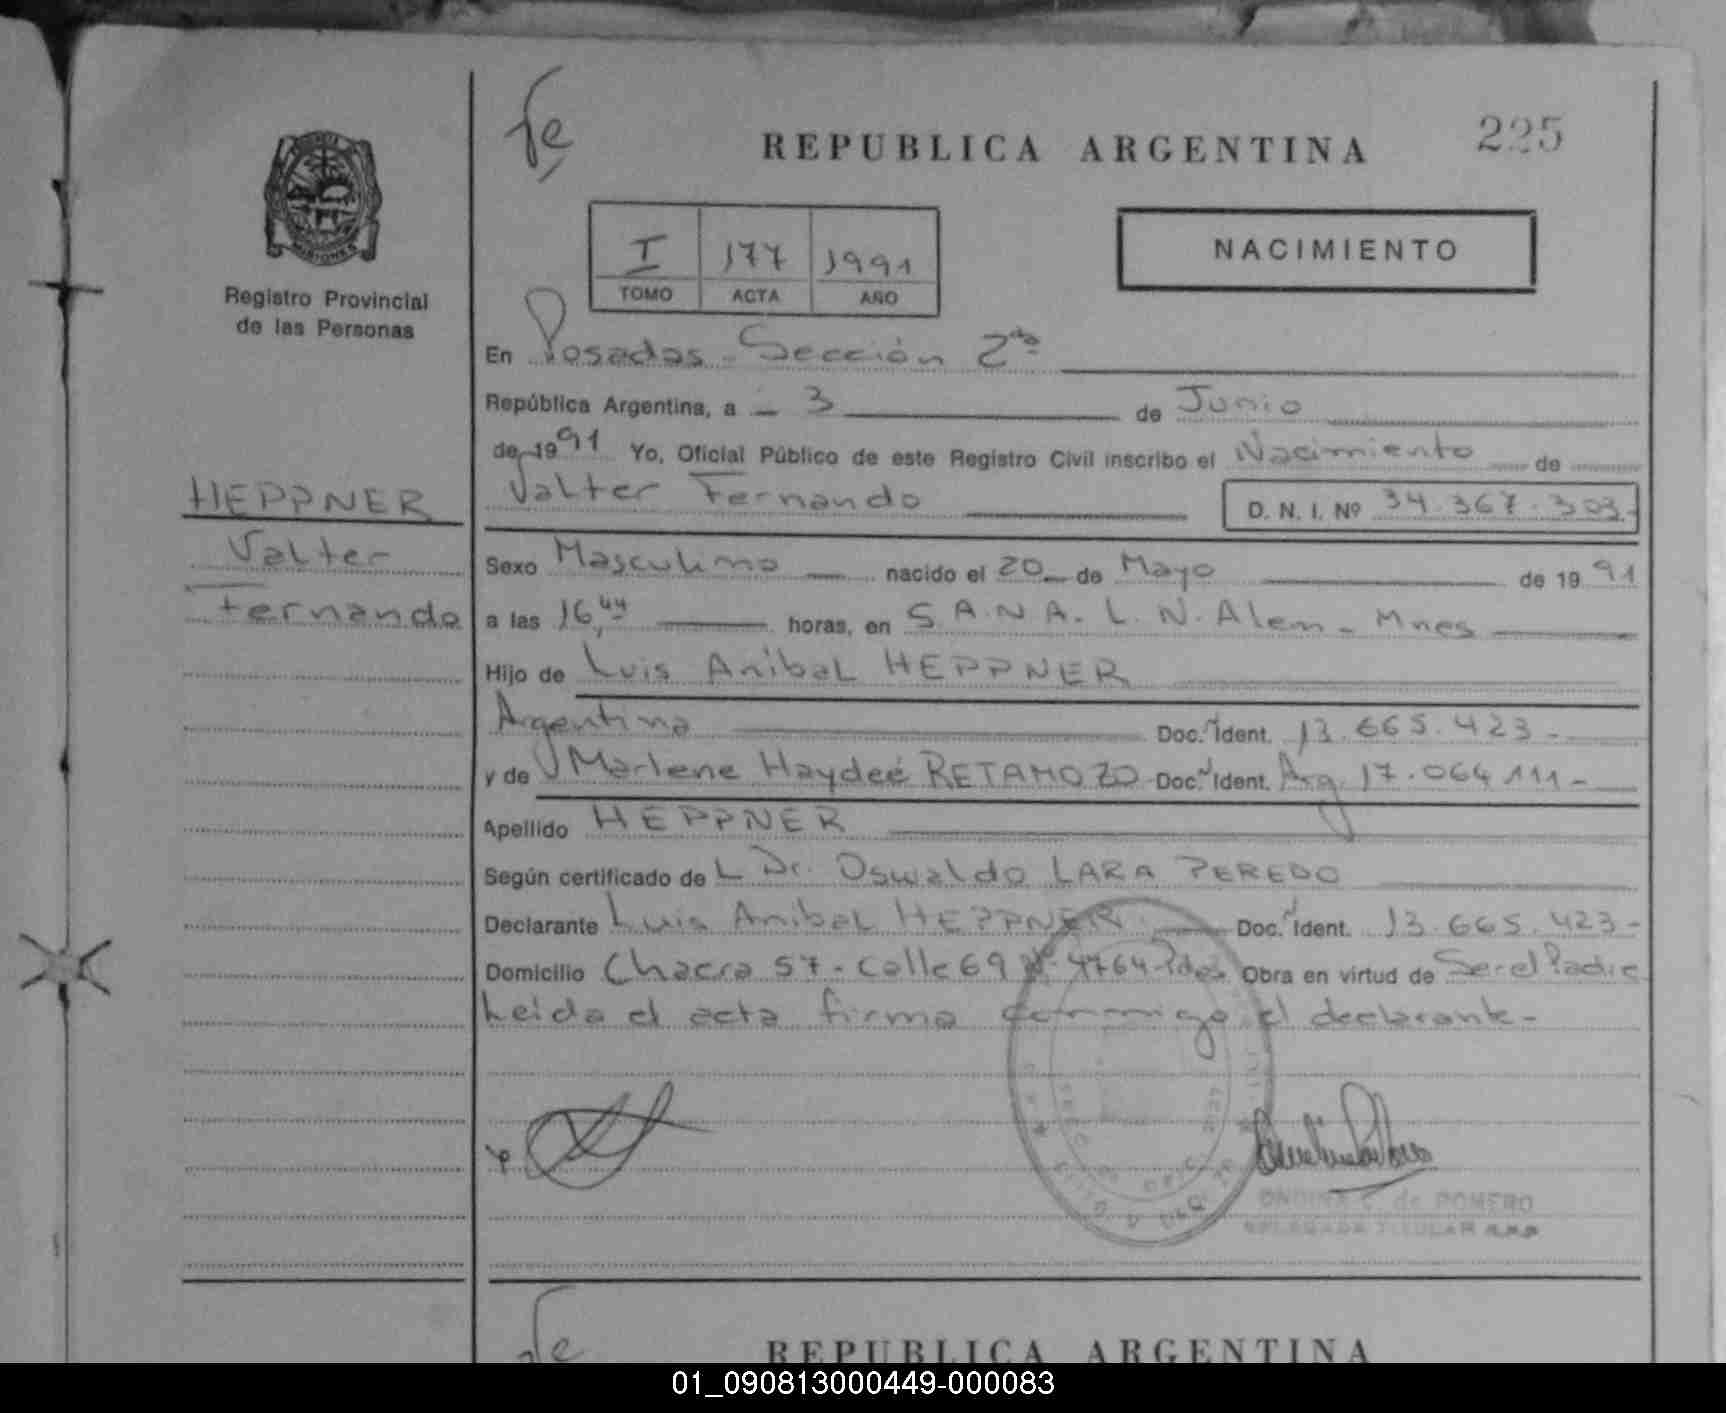 Fe
REPUBLICA ARGENTINA
225
MISIONES
Registro Provincial
de las Personas
I 177 1991
TOMO ACTA AÑO
NACIMIENTO
En Posadas - Sección 2da
República Argentina, a - 3 de Junio
de 1991 Yo, Oficial Público de este Registro Civil inscribo el Nacimiento de
Valter Fernando D. N. I. Nº 34.367.303-
HEPPNER
Valter
Fernando
Sexo Masculino nacido el 20 de Mayo de 1991
a las 16,44 horas, en S.A.N.A. L. N. Alem - Mnes
Hijo de Luis Anibal HEPPNER
Argentina Doc. Ident. 13.665.423-
y de Marlene Haydeé RETAMOZO Doc. Ident. Arg. 17.064.111-
Apellido HEPPNER
Según certificado de L Dr. Oswaldo LARA PEREDO
Declarante Luis Anibal HEPPNER Doc. Ident. 13.665.423-
Domicilio Chacra 57 - Calle 69 Nº 4764 - Pdas. Obra en virtud de Ser el Padre
Leída el acta firma conmigo el declarante-
ONDINA C. de ROMERO
DELEGADA TITULAR
Fe
REPUBLICA ARGENTINA
01_090813000449-000083